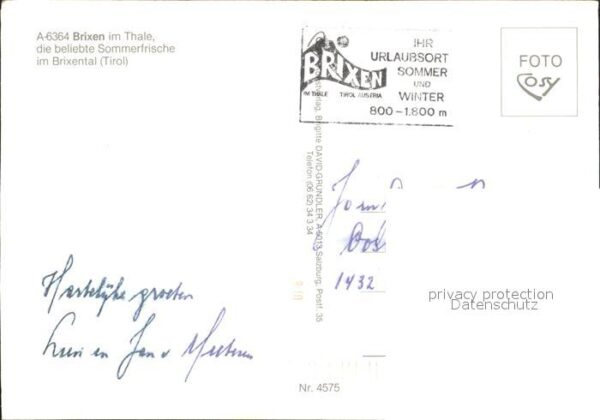 A-6364 Brixen im Thale,
die beliebte Sommerfrische
im Brixental (Tirol)
BRIXEN
IM THALE TIROL AUSTRIA
IHR
URLAUBSORT
SOMMER
UND
WINTER
800-1.800 m
FOTO
Cosy
Brigitte DAVID-GRUNDLER, A-5013 Salzburg, Postf. 35
Telefon (06 62) 34 3 34
1432
privacy protection
Datenschutz
Hartelijke groeten
en Jan v
Nr. 4575